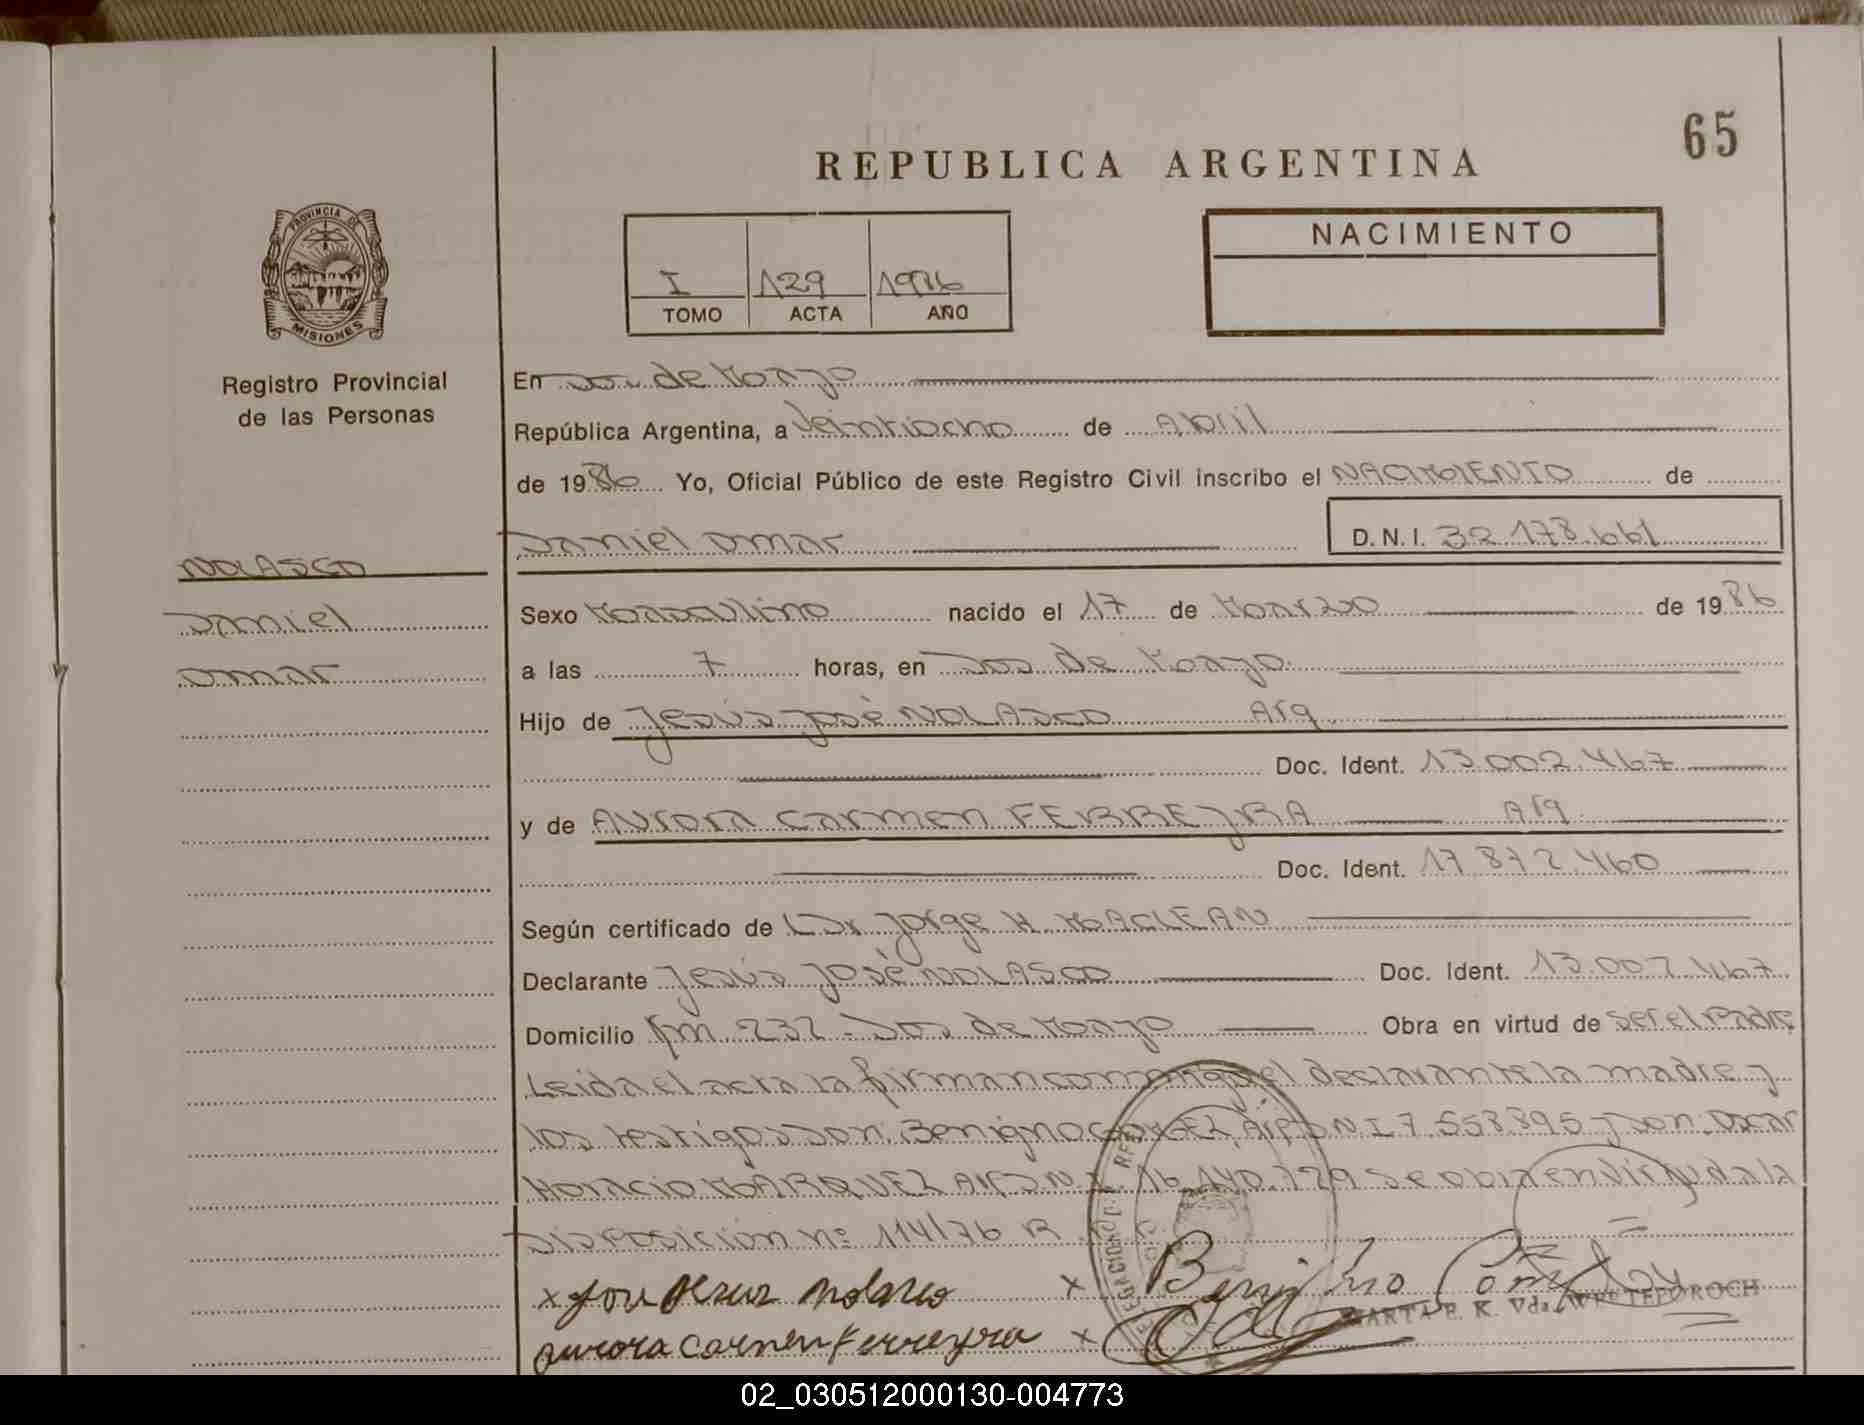 65
REPUBLICA ARGENTINA
PROVINCIA DE
MISIONES
Registro Provincial
de las Personas
I 129 1986
TOMO ACTA AÑO
NACIMIENTO
En Dos de Mayo
República Argentina, a Veintiocho de Abril
de 1986 Yo, Oficial Público de este Registro Civil inscribo el NACIMIENTO de
Daniel Omar
D.N.I. 32.178.661
NOLASCO
Daniel
Omar
Sexo Masculino nacido el 17 de Marzo de 1986
a las 7 horas, en Dos de Mayo
Hijo de Jesús José NOLASCO Arg
Doc. Ident. 13.002.467
y de Aurora Carmen FERREYRA Arg
Doc. Ident. 17.872.460
Según certificado de Dr Jorge H. MACLEAN
Declarante Jesús José NOLASCO Doc. Ident. 13.002.467
Domicilio Km 232 - Dos de Mayo Obra en virtud de ser el Padre
Leida el acta la firman conmigo el declarante la madre y
los testigos Don Benigno GOMEZ, Arg DNI 7.558.895 y Don Oscar
Horacio MARQUEZ Arg DNI 16.140.729 se obra en virtud a la
Disposición nº 114/76 R
x José Jesus Nolasco x Benigno
MARTA E. K. Vda.
aurora carmen Ferreyra x
02_030512000130-004773